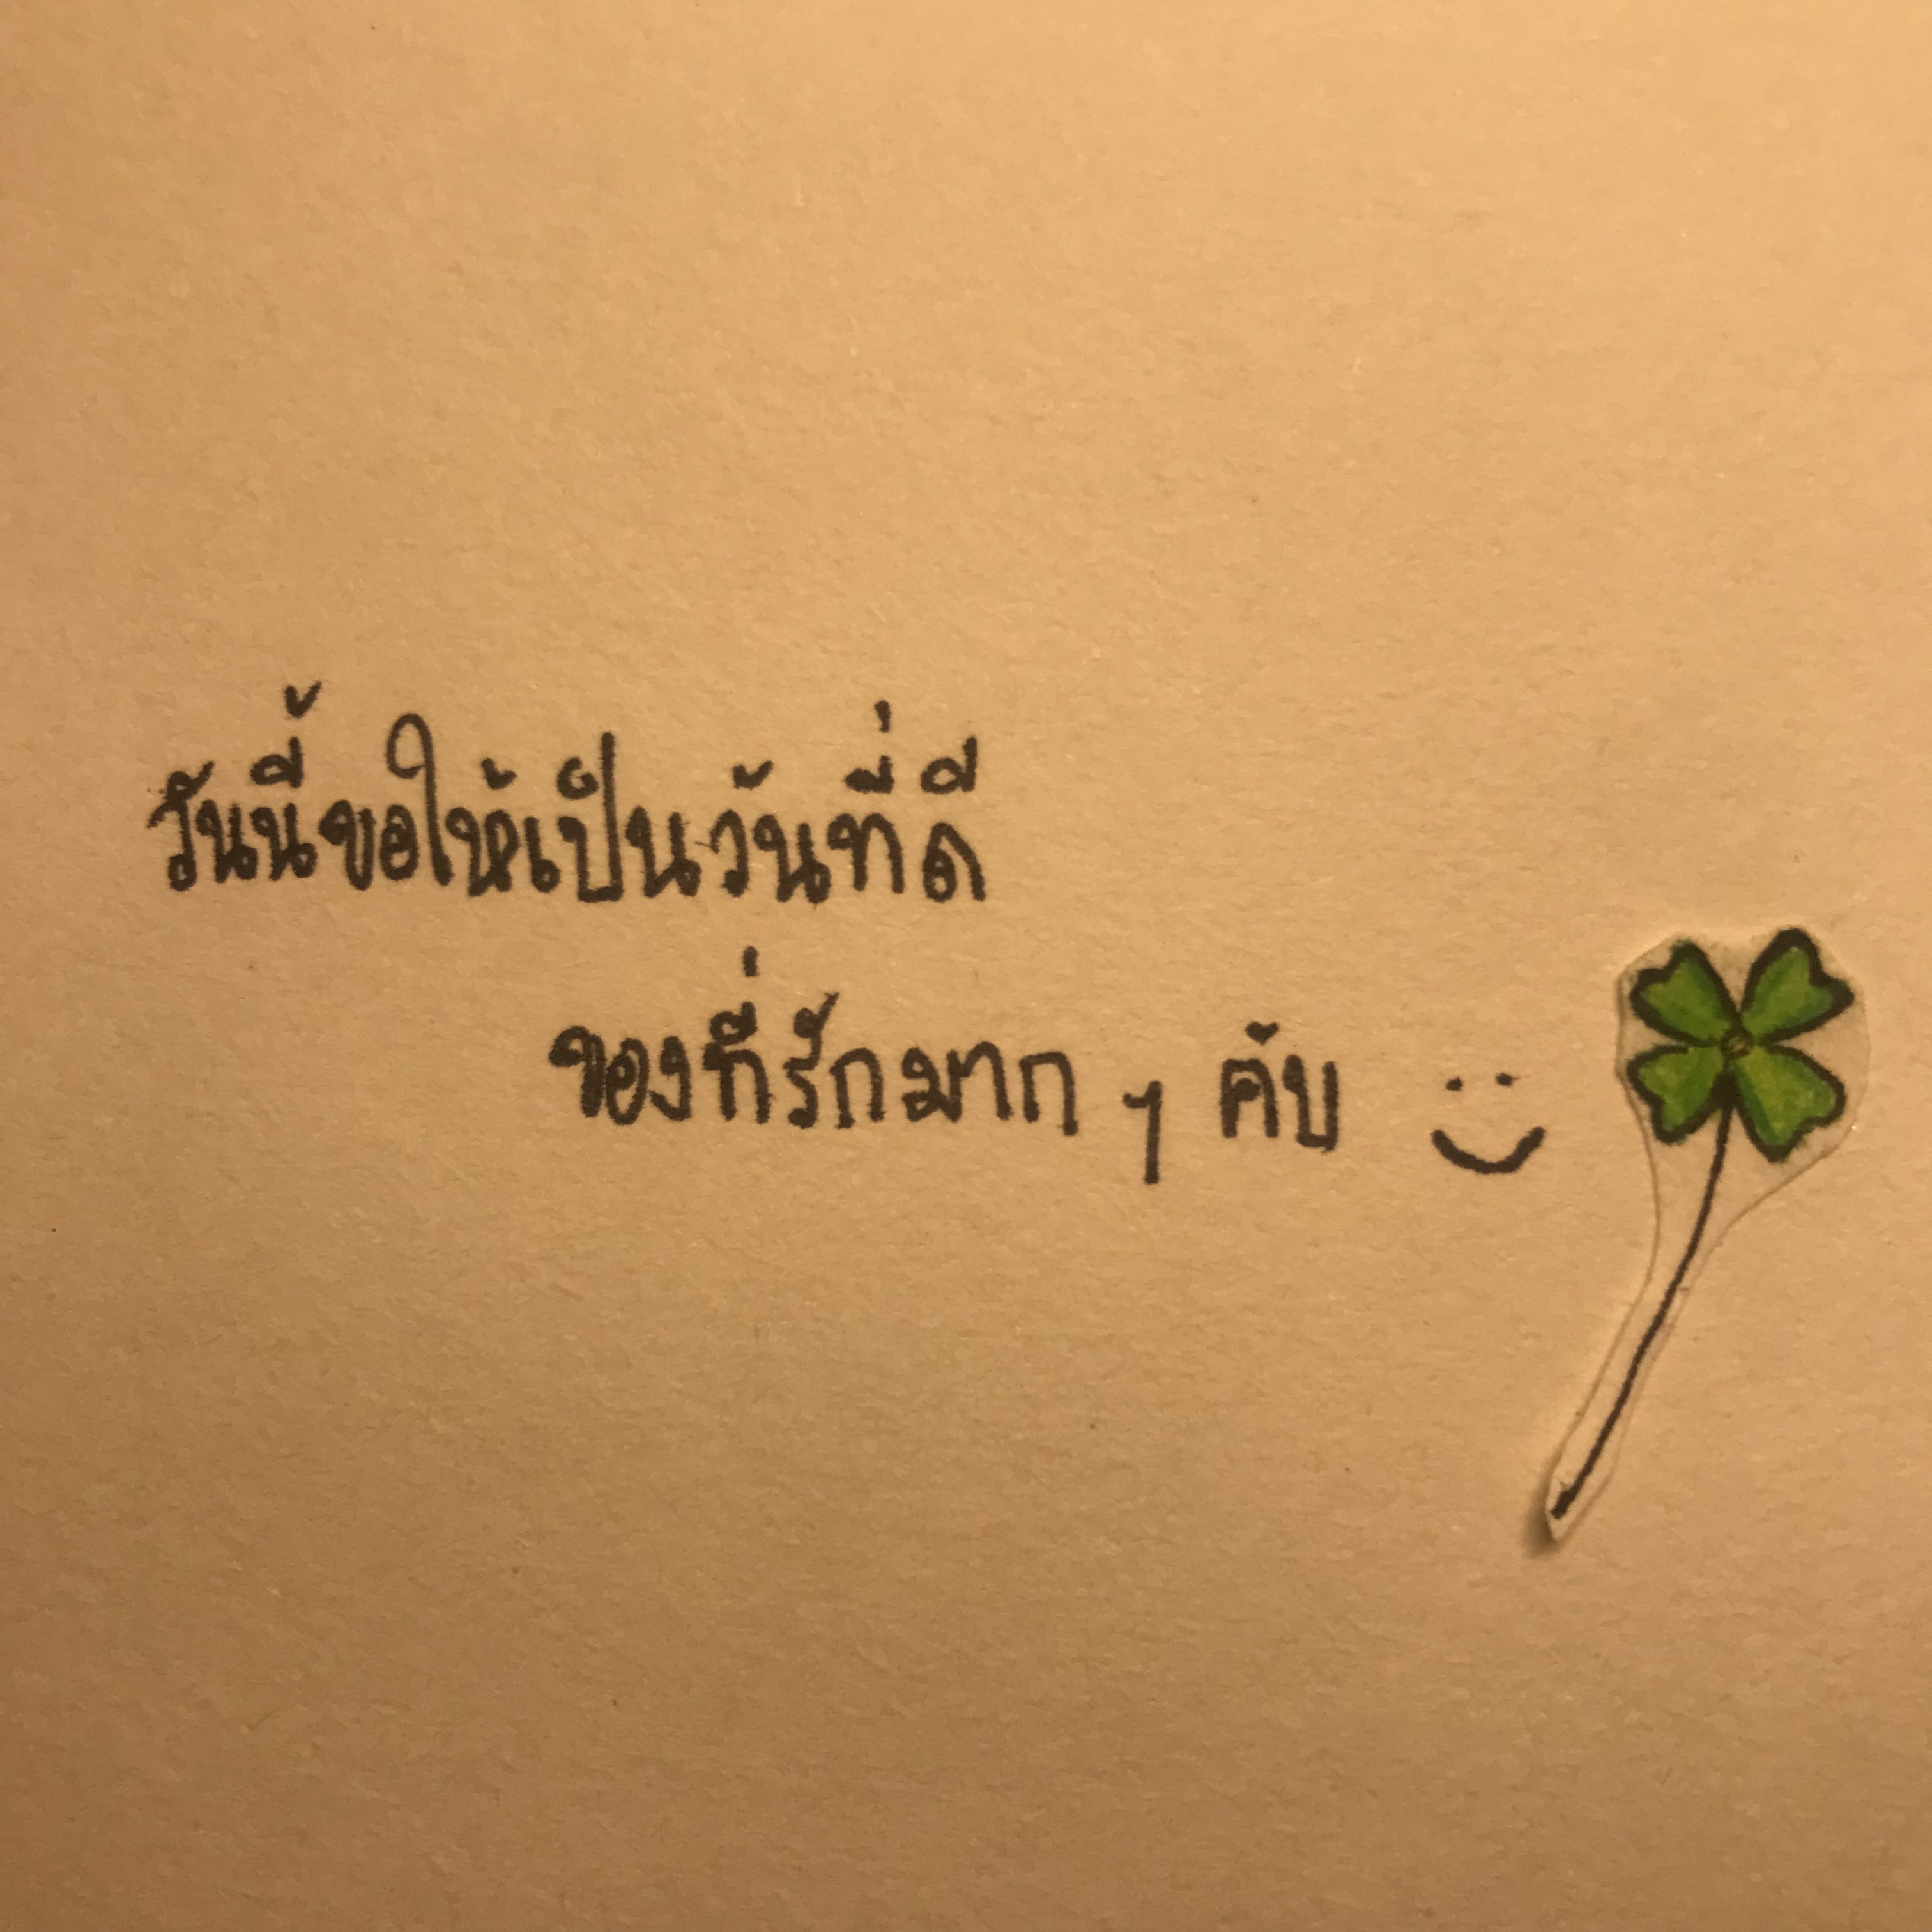 วันนี้ขอให้เป็นวันที่ดี
ของที่รักมาก ๆ คับ